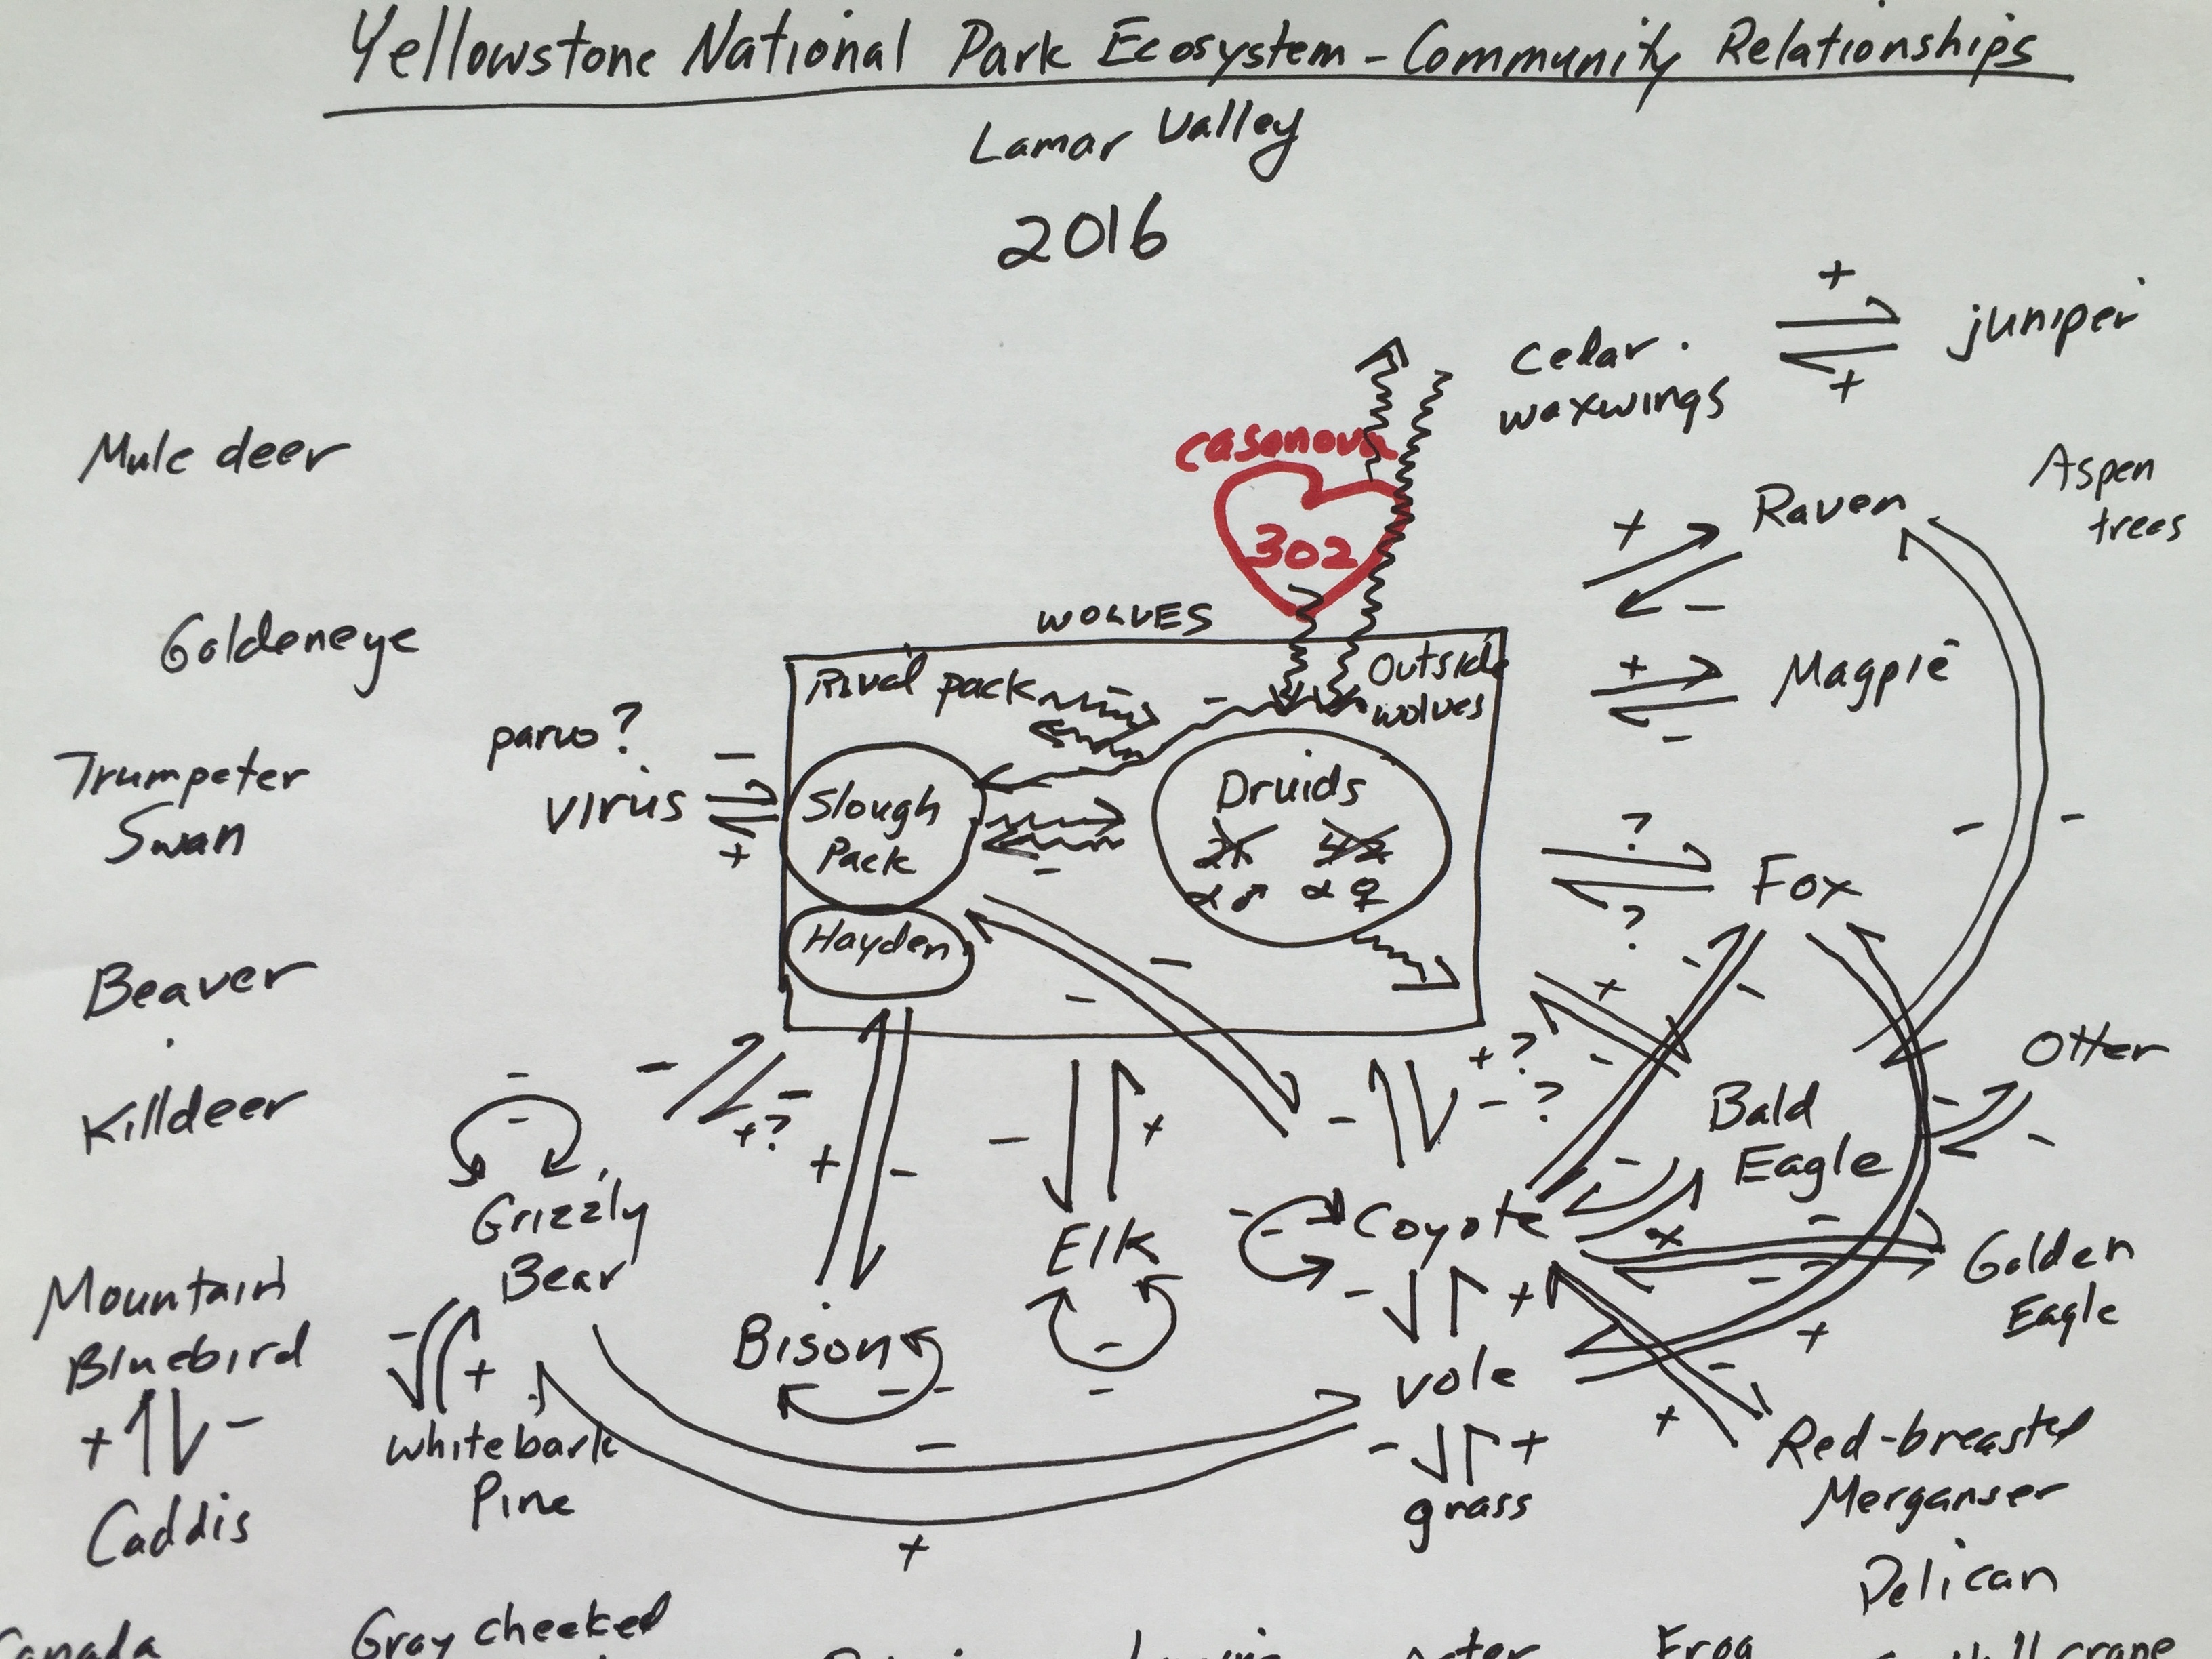 Yellowstone National Park Ecosystem - Community Relationships
Lamar Valley
2016
+
juniper
+
cedar
waxwings
casanova
302
Mule deer
Aspen
trees
+
Raven
-
Goldeneye
WOLVES
Rival pack
-
Outside
wolves
+
Magpie
-
parvo?
virus
-
+
Trumpeter
Swan
Slough
Pack
-
Druids
21 42
α♂ α♀
?
Fox
?
-
-
Hayden
Beaver
-
-
+
-
-
-
Killdeer
-
-
-
-
+?
+
-
-
+
-
+?
-?
Bald
Eagle
Otter
-
-
Grizzly
Bear
Elk
-
-
-
-
Coyote
-
+
-
-
-
Golden
Eagle
Mountain
Bluebird
+ -
Caddis
-
+
Whitebark
Pine
Bison
- -
-
+
vole
-
+
grass
-
+
+
-
+
Red-breasted
Merganser
-
+
Pelican
Canada
Gray cheeked
Frog
crane